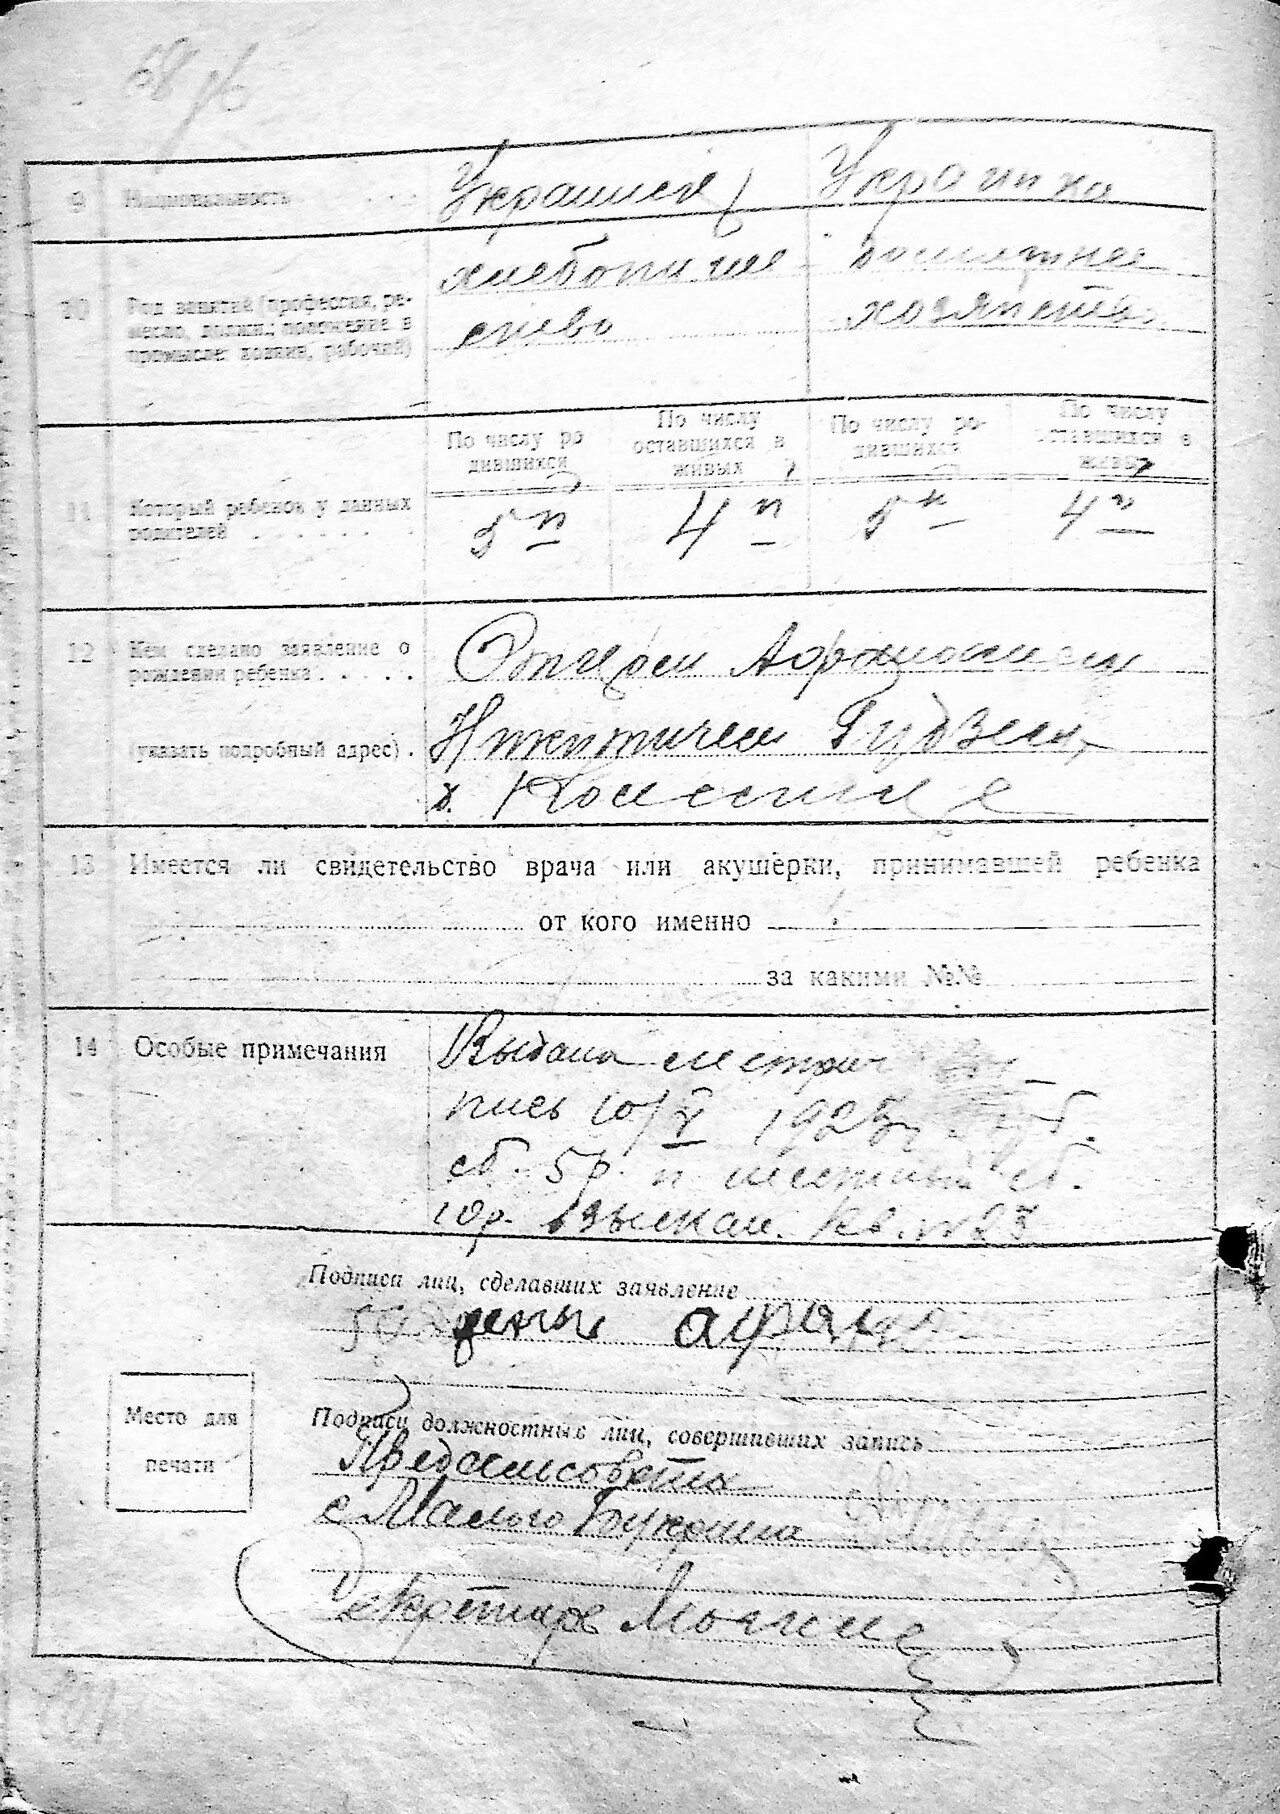 9 Национальность Украинец Украинка
10 Род занятий (профессия, ре-
месло, должн.; положение в
промысле: хозяин, рабочий)
хлебопаше-
ство
домашнее
хозяйство
По числу ро-
дившихся
По числу
оставшихся в
живых
По числу ро-
дившихся
По числу
оставшихся в
живых
11 Который ребенок у данных
родителей
5й 4й 5й 4й
12 Кем сделано заявление о
рождении ребенка
(указать подробный адрес)
Отцом Афанасием
Никитичем
х.
13 Имеется ли свидетельство врача или акушерки, принимавшей ребенка
от кого именно
за какими №№
14 Особые примечания
Выдана метрич
пись 10/V 192
сб. 5 р. и местный сб.
10р. взыскан. кв. №
Подписи лиц, сделавших заявление
Место для
печати
Подписи должностных лиц, совершивших запись
Предсельсовета
с Малого Букрина
Секретарь